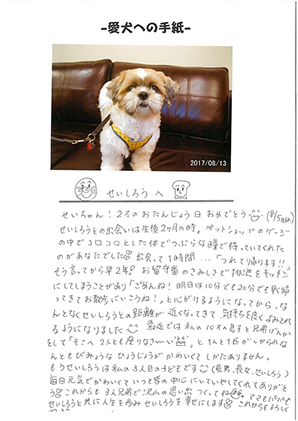 -愛犬への手紙-
2017/08/13
せいしろう へ
せいちゃん！2才のおたんじょう日おめでとう (8/5生まれ)
せいしろうとの出会いは生後2ヶ月の時。ペットショップのゲージ
の中でコロコロとした体でつぶらな瞳で待っていてくれた
のがあなたでした 出会って1時間…「つれて帰ります!!」
そう言ってから早2年。お留守番のさみしさで
にしてしまうことがあり「ごめんね！明日は10分でも20分でも早く帰
ってきてお散歩にいこうね！」と心がけるようになってから、な
んとなくせいしろうとの距離が近くなってきて気持ちを良くよみとれ
るようになりました 最近では私の10才の息子と兄弟げんか
をして「そこへ2人とも座りなさ〜い」と1人と1匹がしかられな
んともびみょうなひょうじょうがかわいくてしかたありません。
もうせいしろうは私の3人目の子どもです(長男、長女、せいしろう)
毎日元気でかわいくていつも家の中心にいていやしてくれてありがと
う これからも3人兄弟で沢山の思い出つくってね ママもパパも
せいしろうと共に人生を歩みせいしろうを幸せにします これからもよろしく